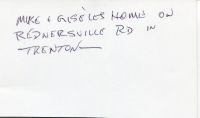 MIKE & GISÈLES HOME ON
REDNERSVILLE RD IN
TRENTON